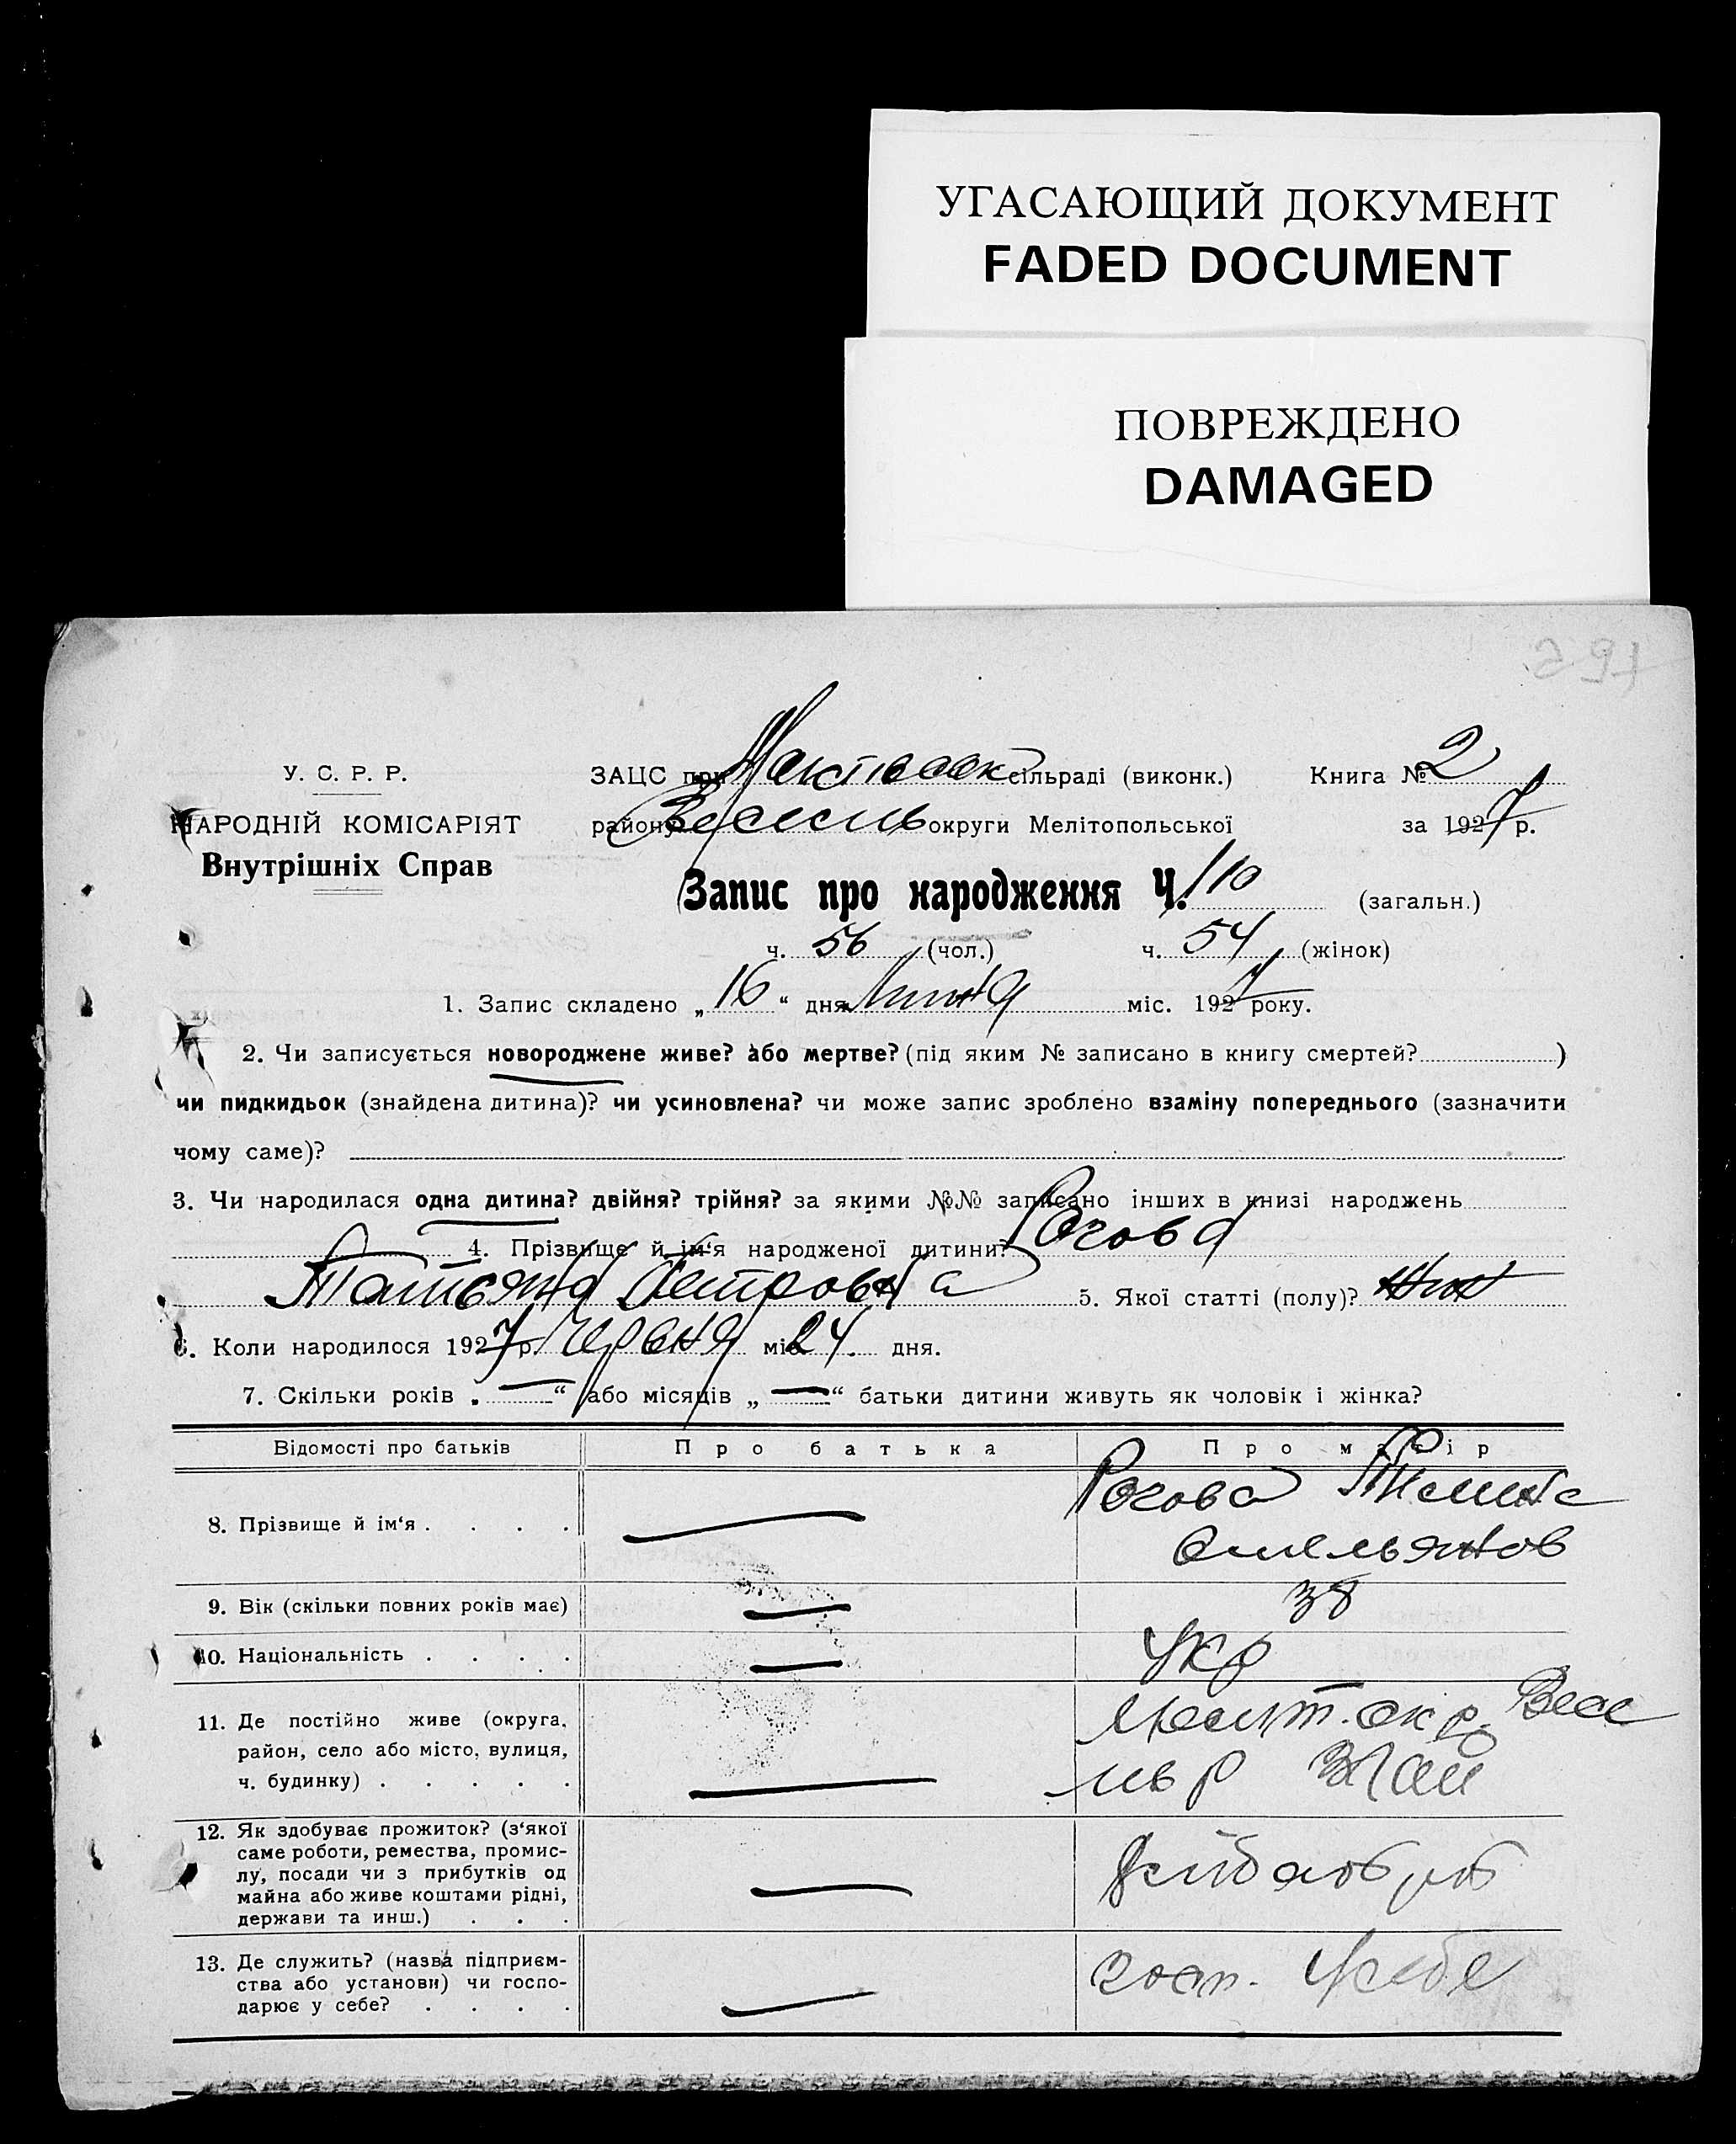 УГАСАЮЩИЙ ДОКУМЕНТ
FADED DOCUMENT
ПОВРЕЖДЕНО
DAMAGED
У. С. Р. Р.
НАРОДНІЙ КОМІСАРІЯТ
Внутрішніх Справ
ЗАЦС при сільраді (виконк.) Книга № 2
району округи Мелітопольської за 1927 р.
Запис про народження Ч. 110 (загальн.)
ч. 56 (чол.) ч. 54 (жінок)
1. Запис складено „ 16 “ дня Липня міс. 1927 року.
2. Чи записується новороджене живе? або мертве? (під яким № записано в книгу смертей? )
чи пидкидьок (знайдена дитина)? чи усиновлена? чи може запис зроблено взаміну попереднього (зазначити
чому саме)?
3. Чи народилася одна дитина? двійня? трійня? за якими №№ записано інших в книзі народжень
4. Прізвище й ім‘я народженої дитини? Рогова
Татьяна Петровна 5. Якої статті (полу)? жін
6. Коли народилося 1927 р. Червня міс 24. дня.
7. Скільки років „ — “ або місяців „ — “ батьки дитини живуть як чоловік і жінка?
Відомості про батьків Про батька Про матір
8. Прізвище й ім‘я . . . . — Рогова
Омельянов
9. Вік (скільки повних років має) — 38
10. Національність . . . . — Укр
11. Де постійно живе (округа, район, село або місто, вулиця, ч. будинку) . . . . . — Меліт. окр. Весе
р
12. Як здобуває прожиток? (з‘якої саме роботи, ремества, промис-
лу, посади чи з прибутків од
майна або живе коштами рідні,
держави та инш.) . . . —
13. Де служить? (назва підприєм-
ства або установи) чи госпо-
дарює у себе? . . . . — госп. у себе